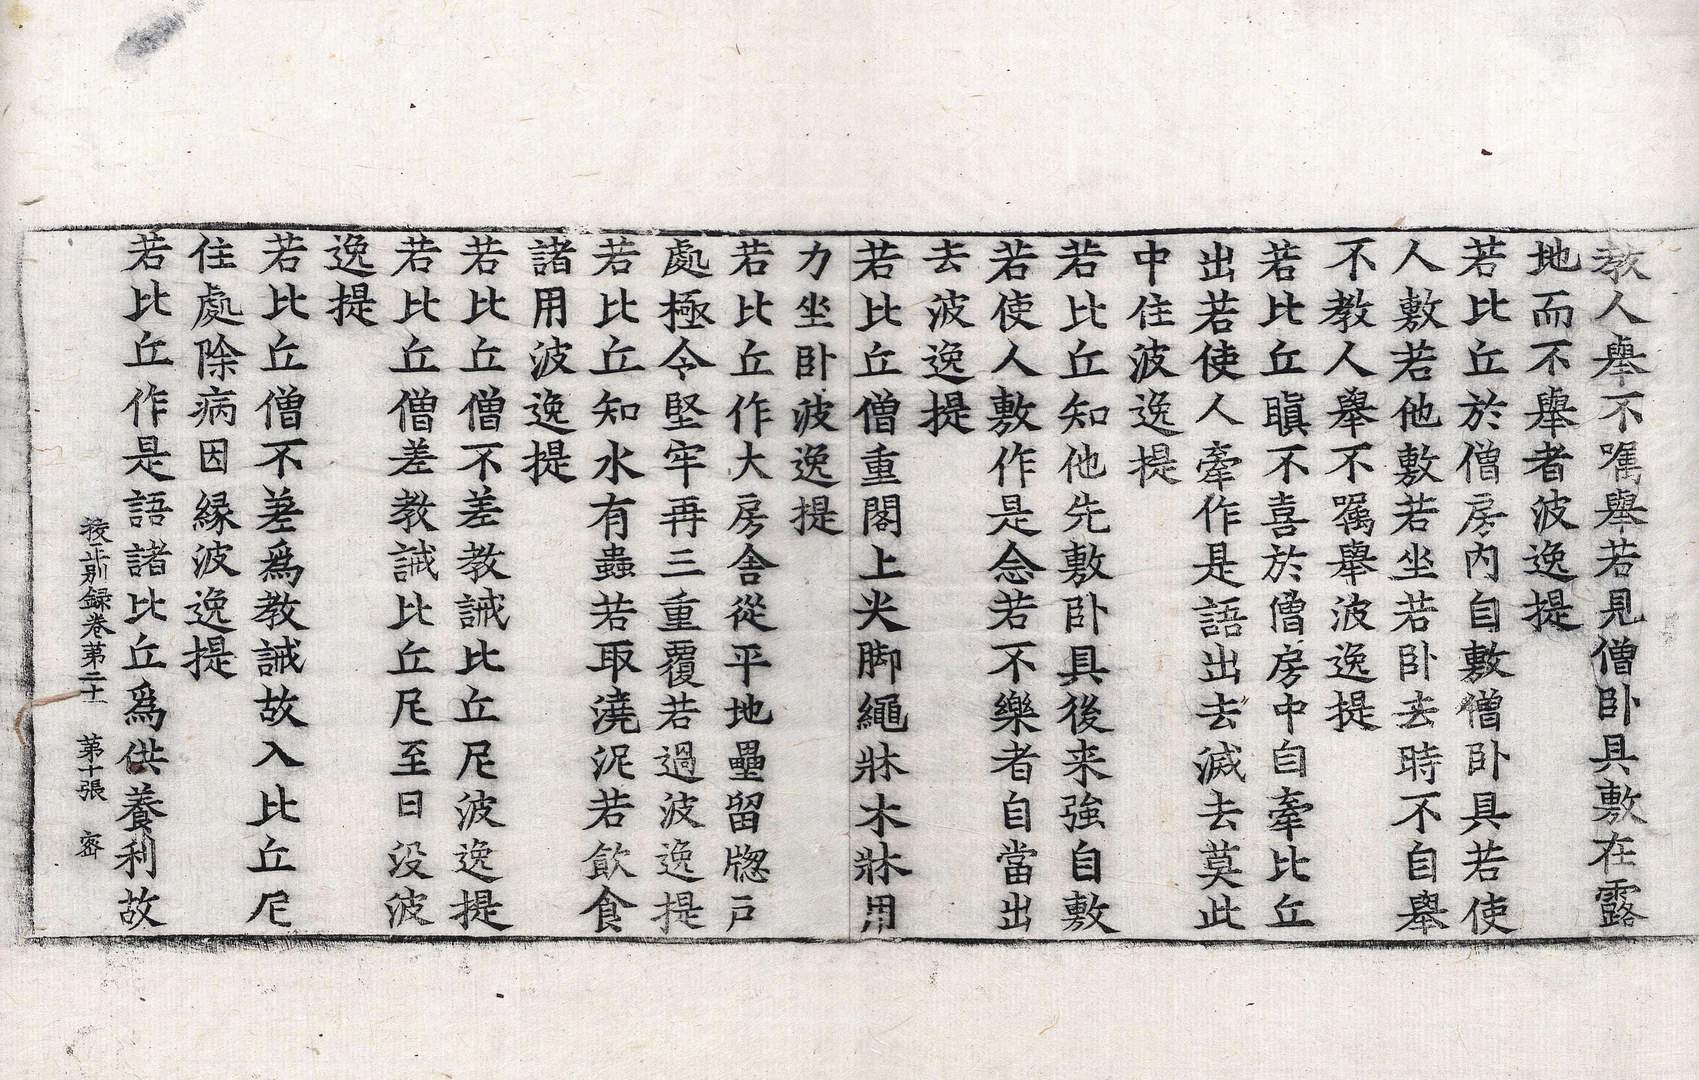 教人舉不囑舉若見僧卧具敷在露
地而不舉者波逸提
若比丘於僧房內自敷僧卧具若使
人敷若他敷若坐若卧去時不自舉
不教人舉不囑舉波逸提
若比丘瞋不喜於僧房中自牽比丘
出若使人牽作是語出去滅去莫此
中住波逸提
若比丘知他先敷卧具後来強自敷
若使人敷作是念若不樂者自當出
去波逸提
若比丘僧重閣上尖脚繩牀木牀用
力坐卧波逸提
若比丘作大房舍從平地壘留牕戶
處極令堅牢再三重覆若過波逸提
若比丘知水有蟲若取澆泥若飲食
諸用波逸提
若比丘僧不差教誡比丘尼波逸提
若比丘僧差教誡比丘尼至日没波
逸提
若比丘僧不差爲教誡故入比丘尼
住處除病因緣波逸提
若比丘作是語諸比丘爲供養利故
校正别録卷第二十一 第十張 密